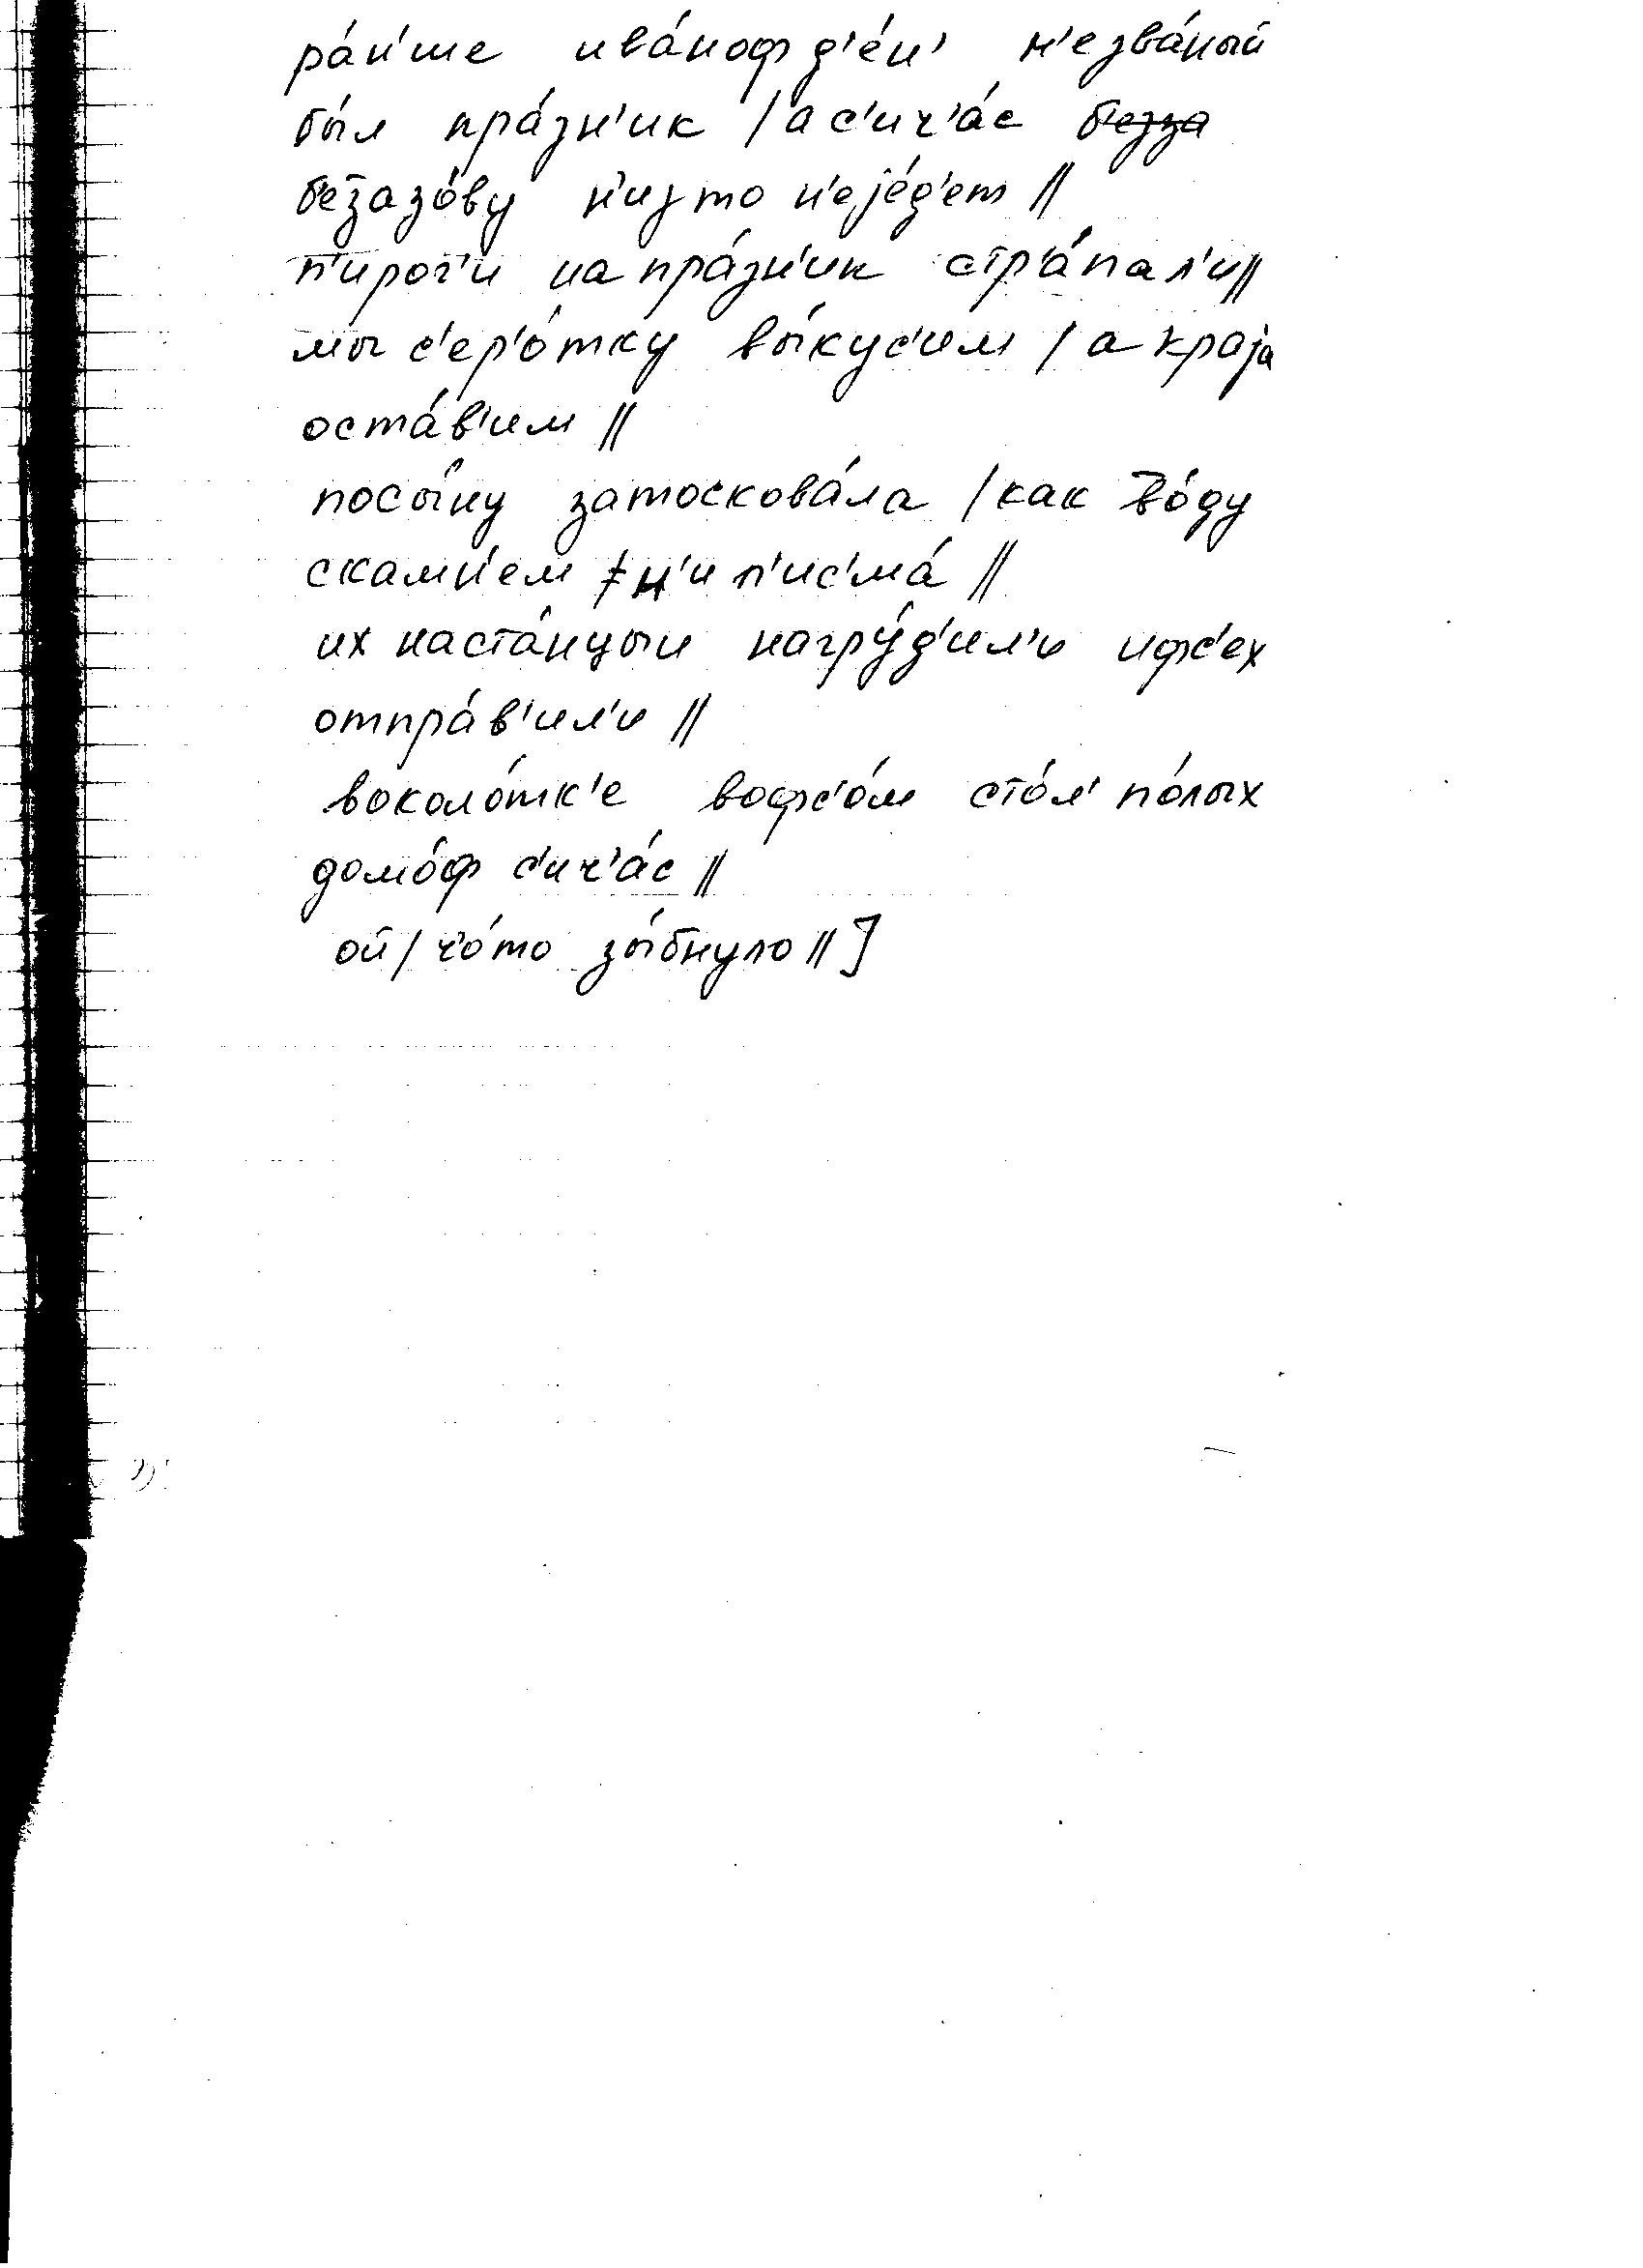 ра́н'ше ива́ноф д'е́н' н'езва́ный
бы́л пра́зн'ик / а с'ич'а́с б'езза
б'еззазо́ву н'ихто н'еjе́д'ет //
п'ирог'и на пра́зн'ик стр'а́пал'и //
мы с'ер'о́тку вы́кус'им / а краjа
оста́в'им //
посы́ну затоскова́ла / как в во́ду
скамн'ем / н'и п'ис'ма́ //
их наста́нцыи нагру́д'ил'и ифс'ех
отпра́в'ил'и //
воколо́тк'е вофс'о́м сто́л' по́лых
домо́ф с'ич'а́с //
ой / ч'о́то зы́бнуло // ]